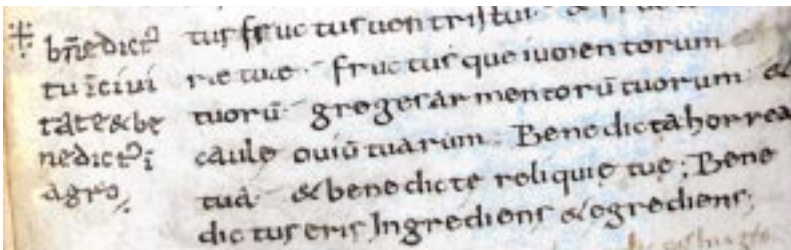 bn̄edict᷒
tu īcivi
tate & be
nedict᷒ ī
agro
tus fructus ventris tui
rę tuę fructusque iumentorum
tuorū greges armentorū tuorum &
caulę oviū tuarum. Benedicta horrea
tua & benedictę reliquię tuę; Bene
dictus eris Ingrediens & egrediens;